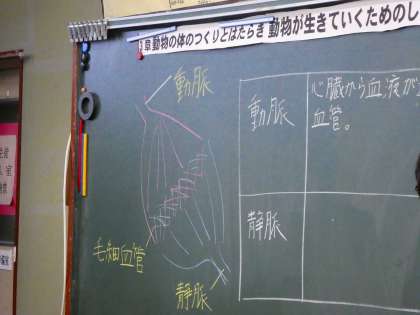 3章 動物の体のつくりとはたらき 動物が生きていくためのし
動脈
毛細血管
静脈
動脈
心臓から血液が
血管。
静脈